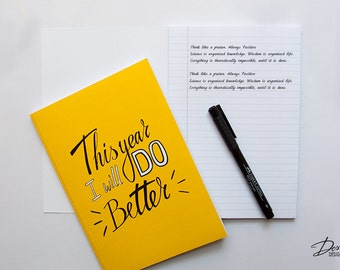 This year
I will DO
Better
Think like a proton. Always Positive
Science is organized knowledge. Wisdom is organized life.
Everything is theoretically impossible, until it is done.
Think like a proton. Always Positive
Science is organized knowledge. Wisdom is organized life.
Everything is theoretically impossible, until it is done.